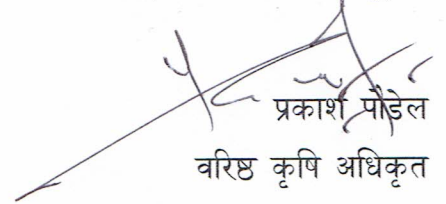 प्रकाश पौडेल
वरिष्ठ कृषि अधिकृत